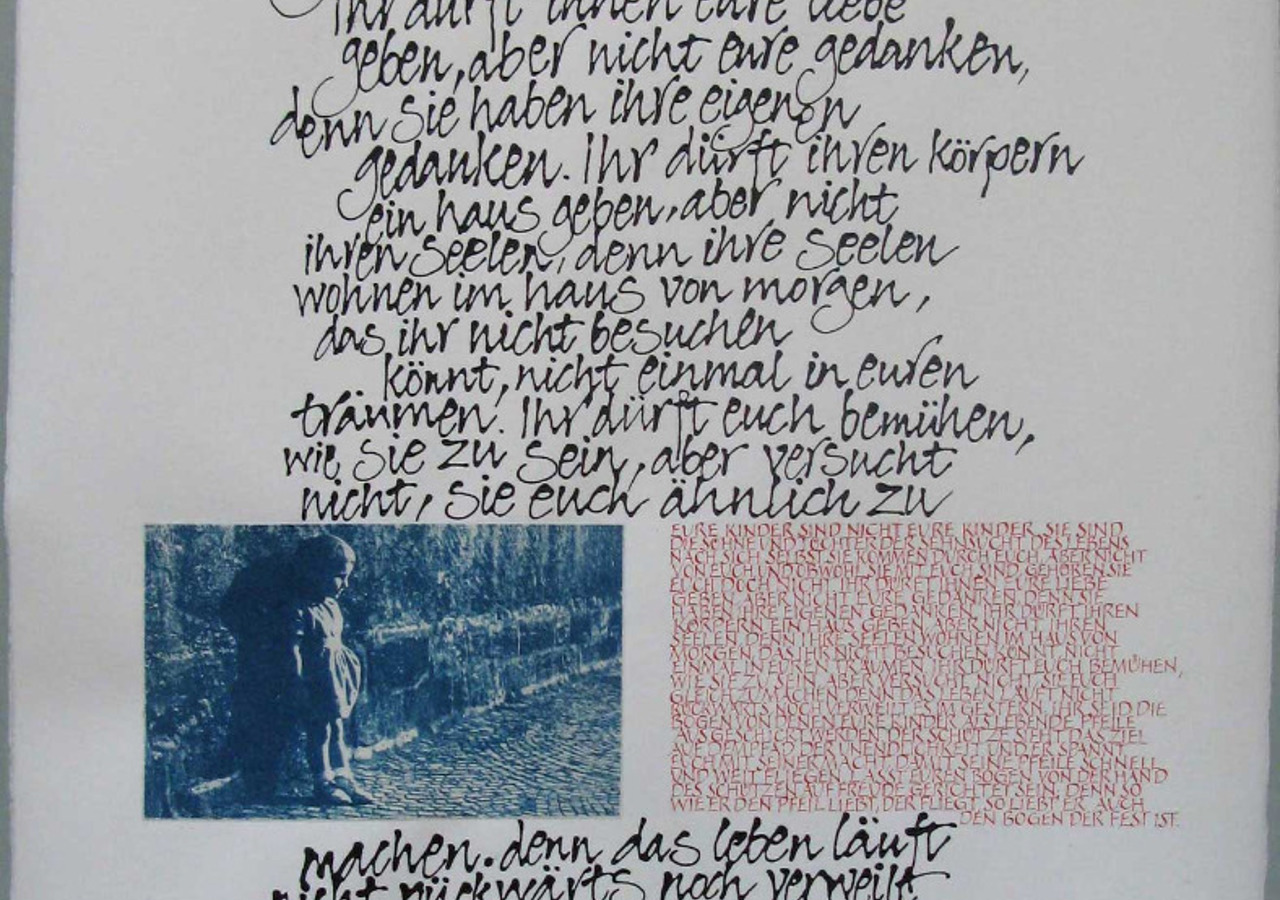 Ihr dürft ihnen eure liebe
geben, aber nicht eure gedanken,
denn sie haben ihre eigenen
gedanken. Ihr dürft ihren körpern
ein haus geben, aber nicht
ihren seelen, denn ihre seelen
wohnen im haus von morgen,
das ihr nicht besuchen
könnt, nicht einmal in euren
träumen. Ihr dürft euch bemühen,
wie sie zu sein, aber versucht
nicht, sie euch ähnlich zu
EURE KINDER SIND NICHT EURE KINDER, SIE SIND
DIE SÖHNE UND TÖCHTER DER SEHNSUCHT DES LEBENS
NACH SICH SELBST. SIE KOMMEN DURCH EUCH, ABER NICHT
VON EUCH, UND OBWOHL SIE MIT EUCH SIND, GEHÖREN SIE
EUCH DOCH NICHT. IHR DÜRFT IHNEN EURE LIEBE
GEBEN, ABER NICHT EURE GEDANKEN, DENN SIE
HABEN IHRE EIGENEN GEDANKEN. IHR DÜRFT IHREN
KÖRPERN EIN HAUS GEBEN, ABER NICHT IHREN
SEELEN, DENN IHRE SEELEN WOHNEN IM HAUS VON
MORGEN, DAS IHR NICHT BESUCHEN KÖNNT, NICHT
EINMAL IN EUREN TRÄUMEN. IHR DÜRFT EUCH BEMÜHEN,
WIE SIE ZU SEIN, ABER VERSUCHT NICHT, SIE EUCH
GLEICH ZU MACHEN. DENN DAS LEBEN LÄUFT NICHT
RÜCKWÄRTS NOCH VERWEILT ES IM GESTERN. IHR SEID DIE
BOGEN VON DENEN EURE KINDER ALS LEBENDE PFEILE
AUSGESCHICKT WERDEN. DER SCHÜTZE SIEHT DAS ZIEL
AUF DEM PFAD DER UNENDLICHKEIT UND ER SPANNT
EUCH MIT SEINER MACHT, DAMIT SEINE PFEILE SCHNELL
UND WEIT FLIEGEN. LASST EUREN BOGEN VON DER HAND
DES SCHÜTZEN AUF FREUDE GERICHTET SEIN, DENN SO
WIE ER DEN PFEIL LIEBT, DER FLIEGT, SO LIEBT ER AUCH
DEN BOGEN DER FEST IST.
machen. denn das leben läuft
nicht rückwärts noch verweilt